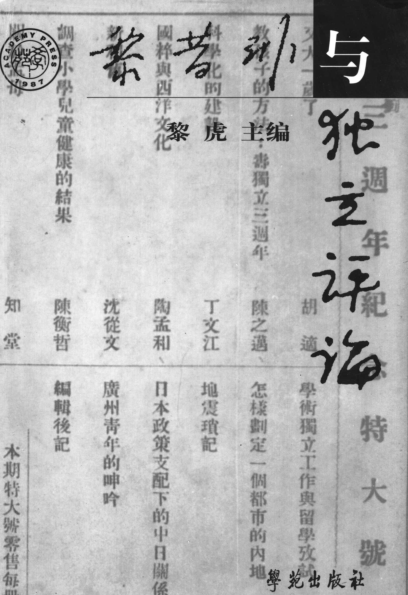 ACADEMY PRESS
1987
黎昔非
与
独立评论
黎虎 主编
三週年紀念特大號
又大一歲了 胡適
子的方法：壽獨立三週年 陳之邁
科學化的建 丁文江
國粹與西洋文化 陶孟和
沈從文
調查小學兒童健康的結果 陳衡哲
知堂
學術獨立工作與留學攷試
怎樣劃定一個都市的內地
地震瑣記
日本政策支配下的中日關係
廣州靑年的呻吟
編輯後記
本期特大號零售每
學苑出版社